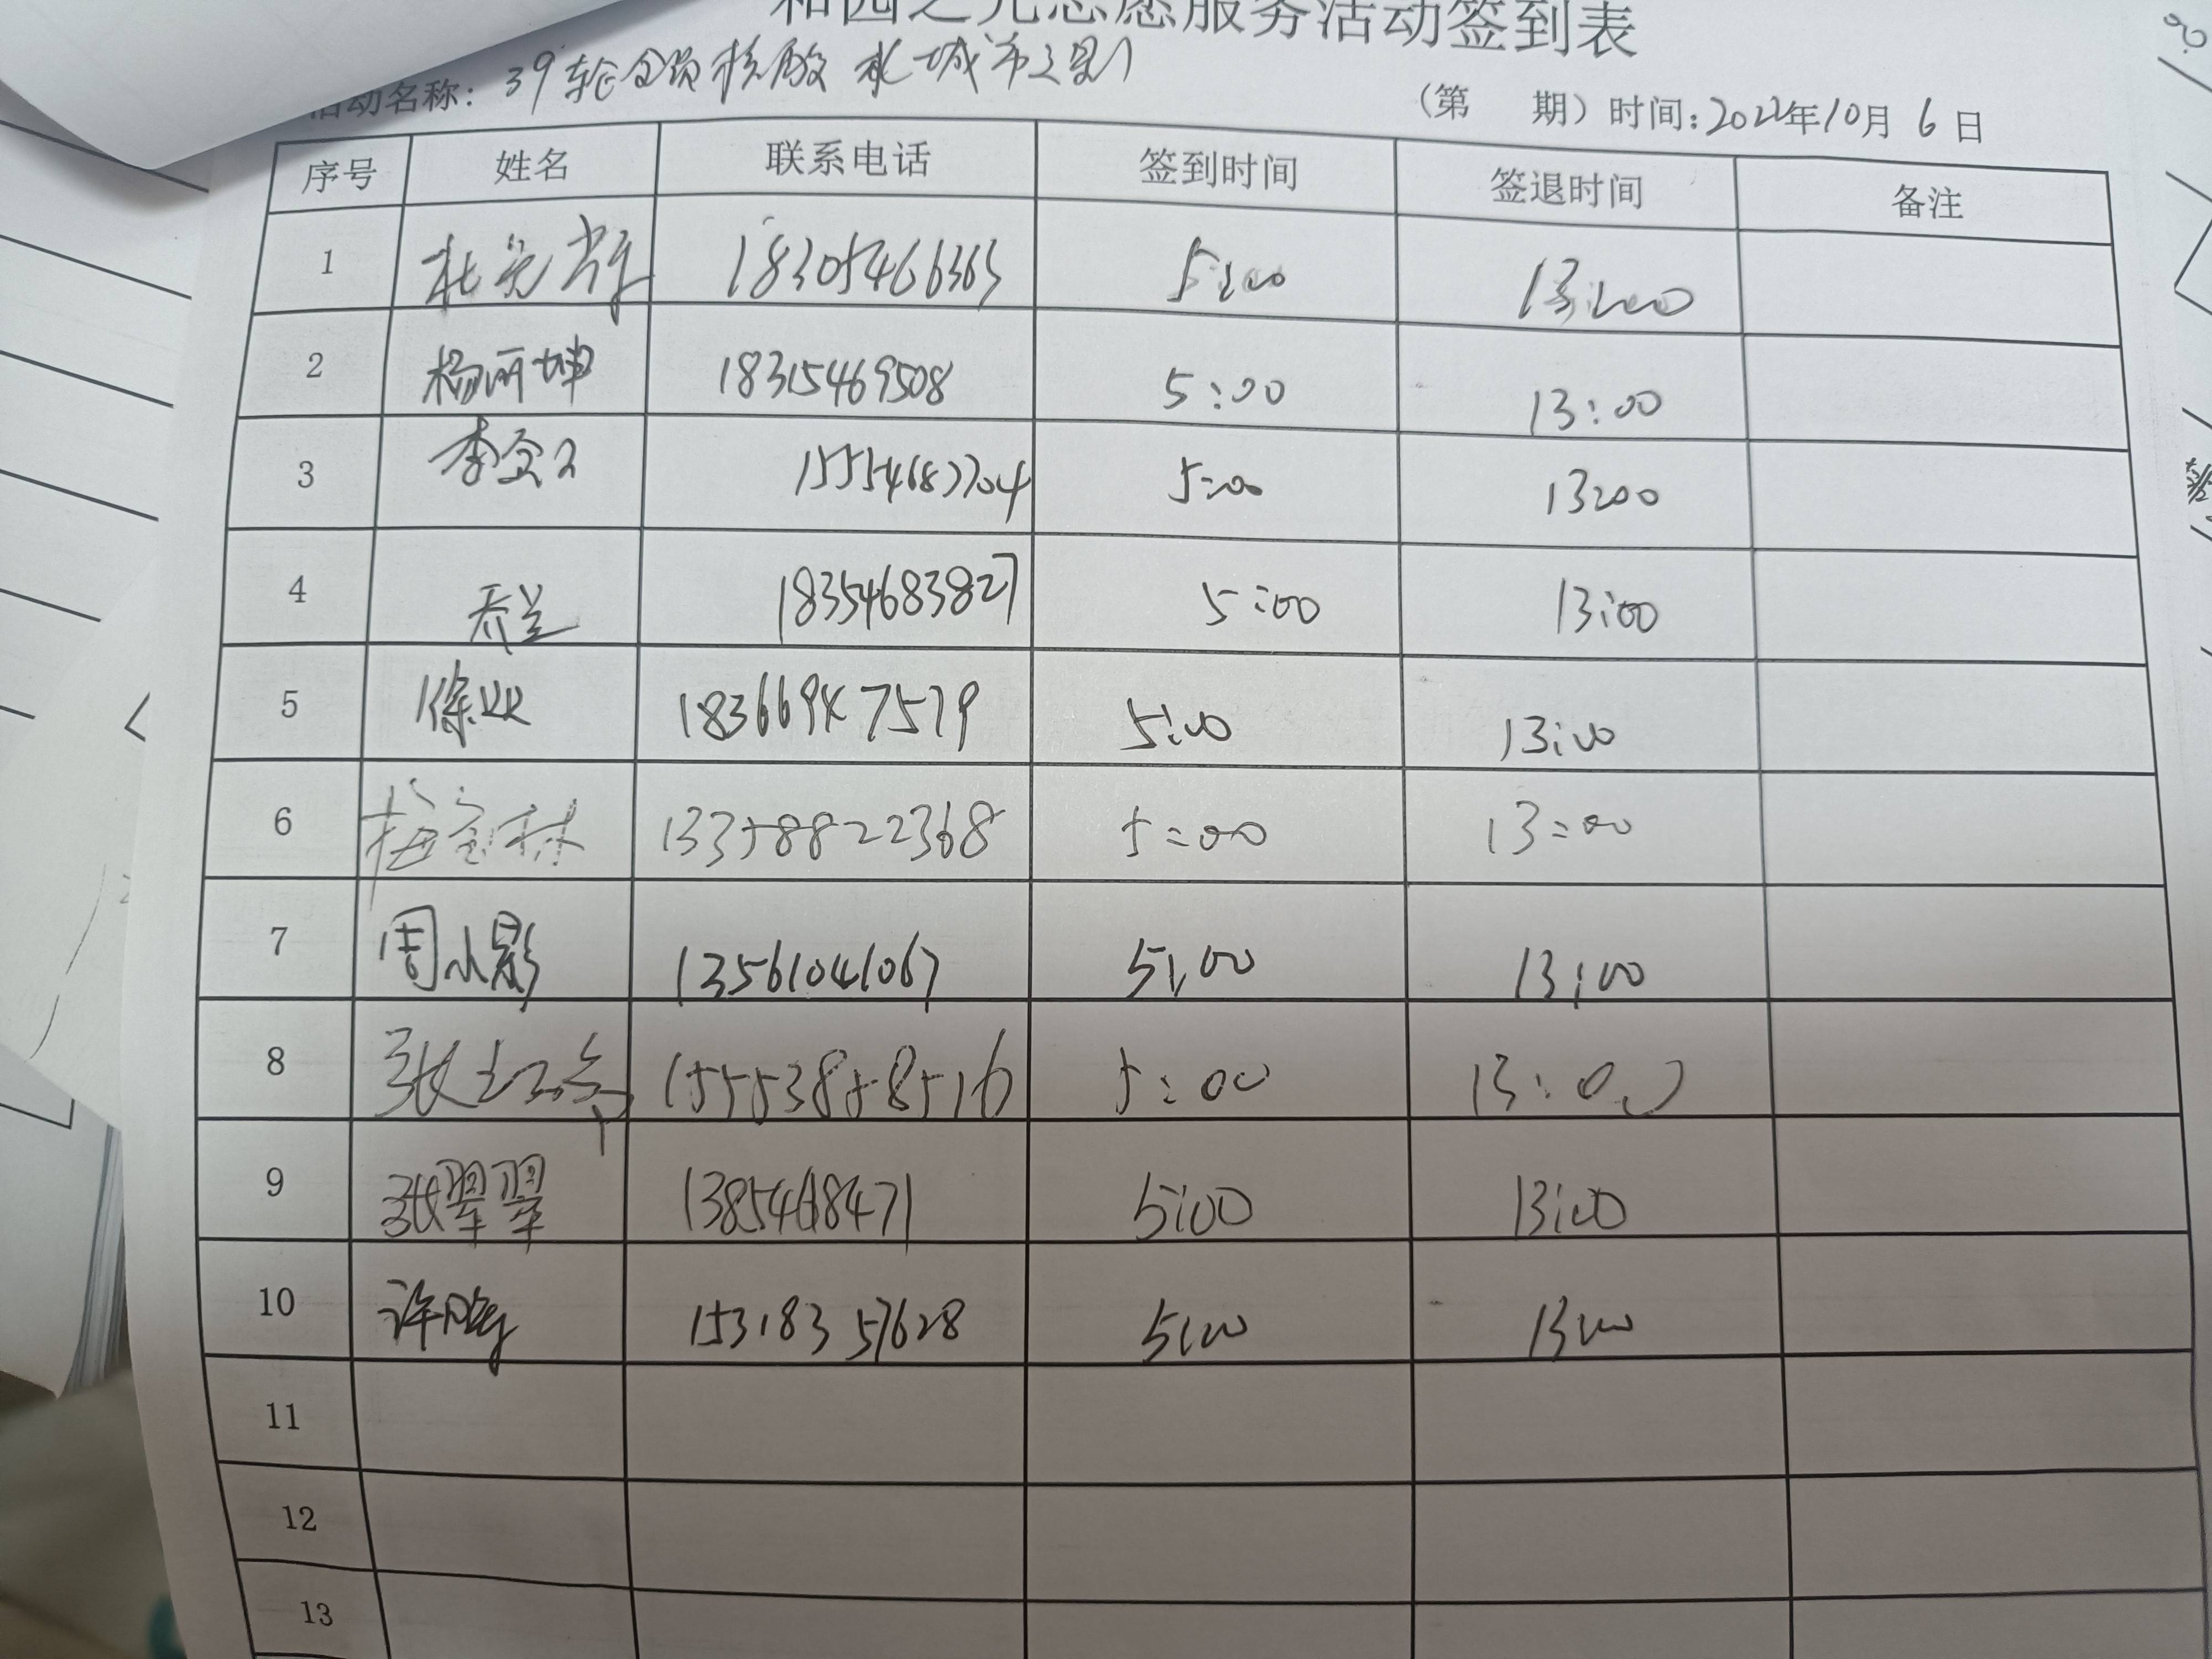 和园之光志愿服务活动签到表
活动名称: 39轮全员核酸 水城市之影 (第 期) 时间: 2022年10月6日
序号 姓名 联系电话 签到时间 签退时间 备注
1 18305466363 5:00 13:00
2 杨丽坤 18315469508 5:00 13:00
3 15554687704 5:00 13:00
4 18354683827 5:00 13:00
5 徐 18366947579 5:00 13:00
6 梅宝林 13358822368 5:00 13:00
7 周小影 13561041067 5:00 13:00
8 张 15553858516 5:00 13:00
9 张翠翠 1385468471 5:00 13:00
10 许 15318357628 5:00 13:00
11
12
13